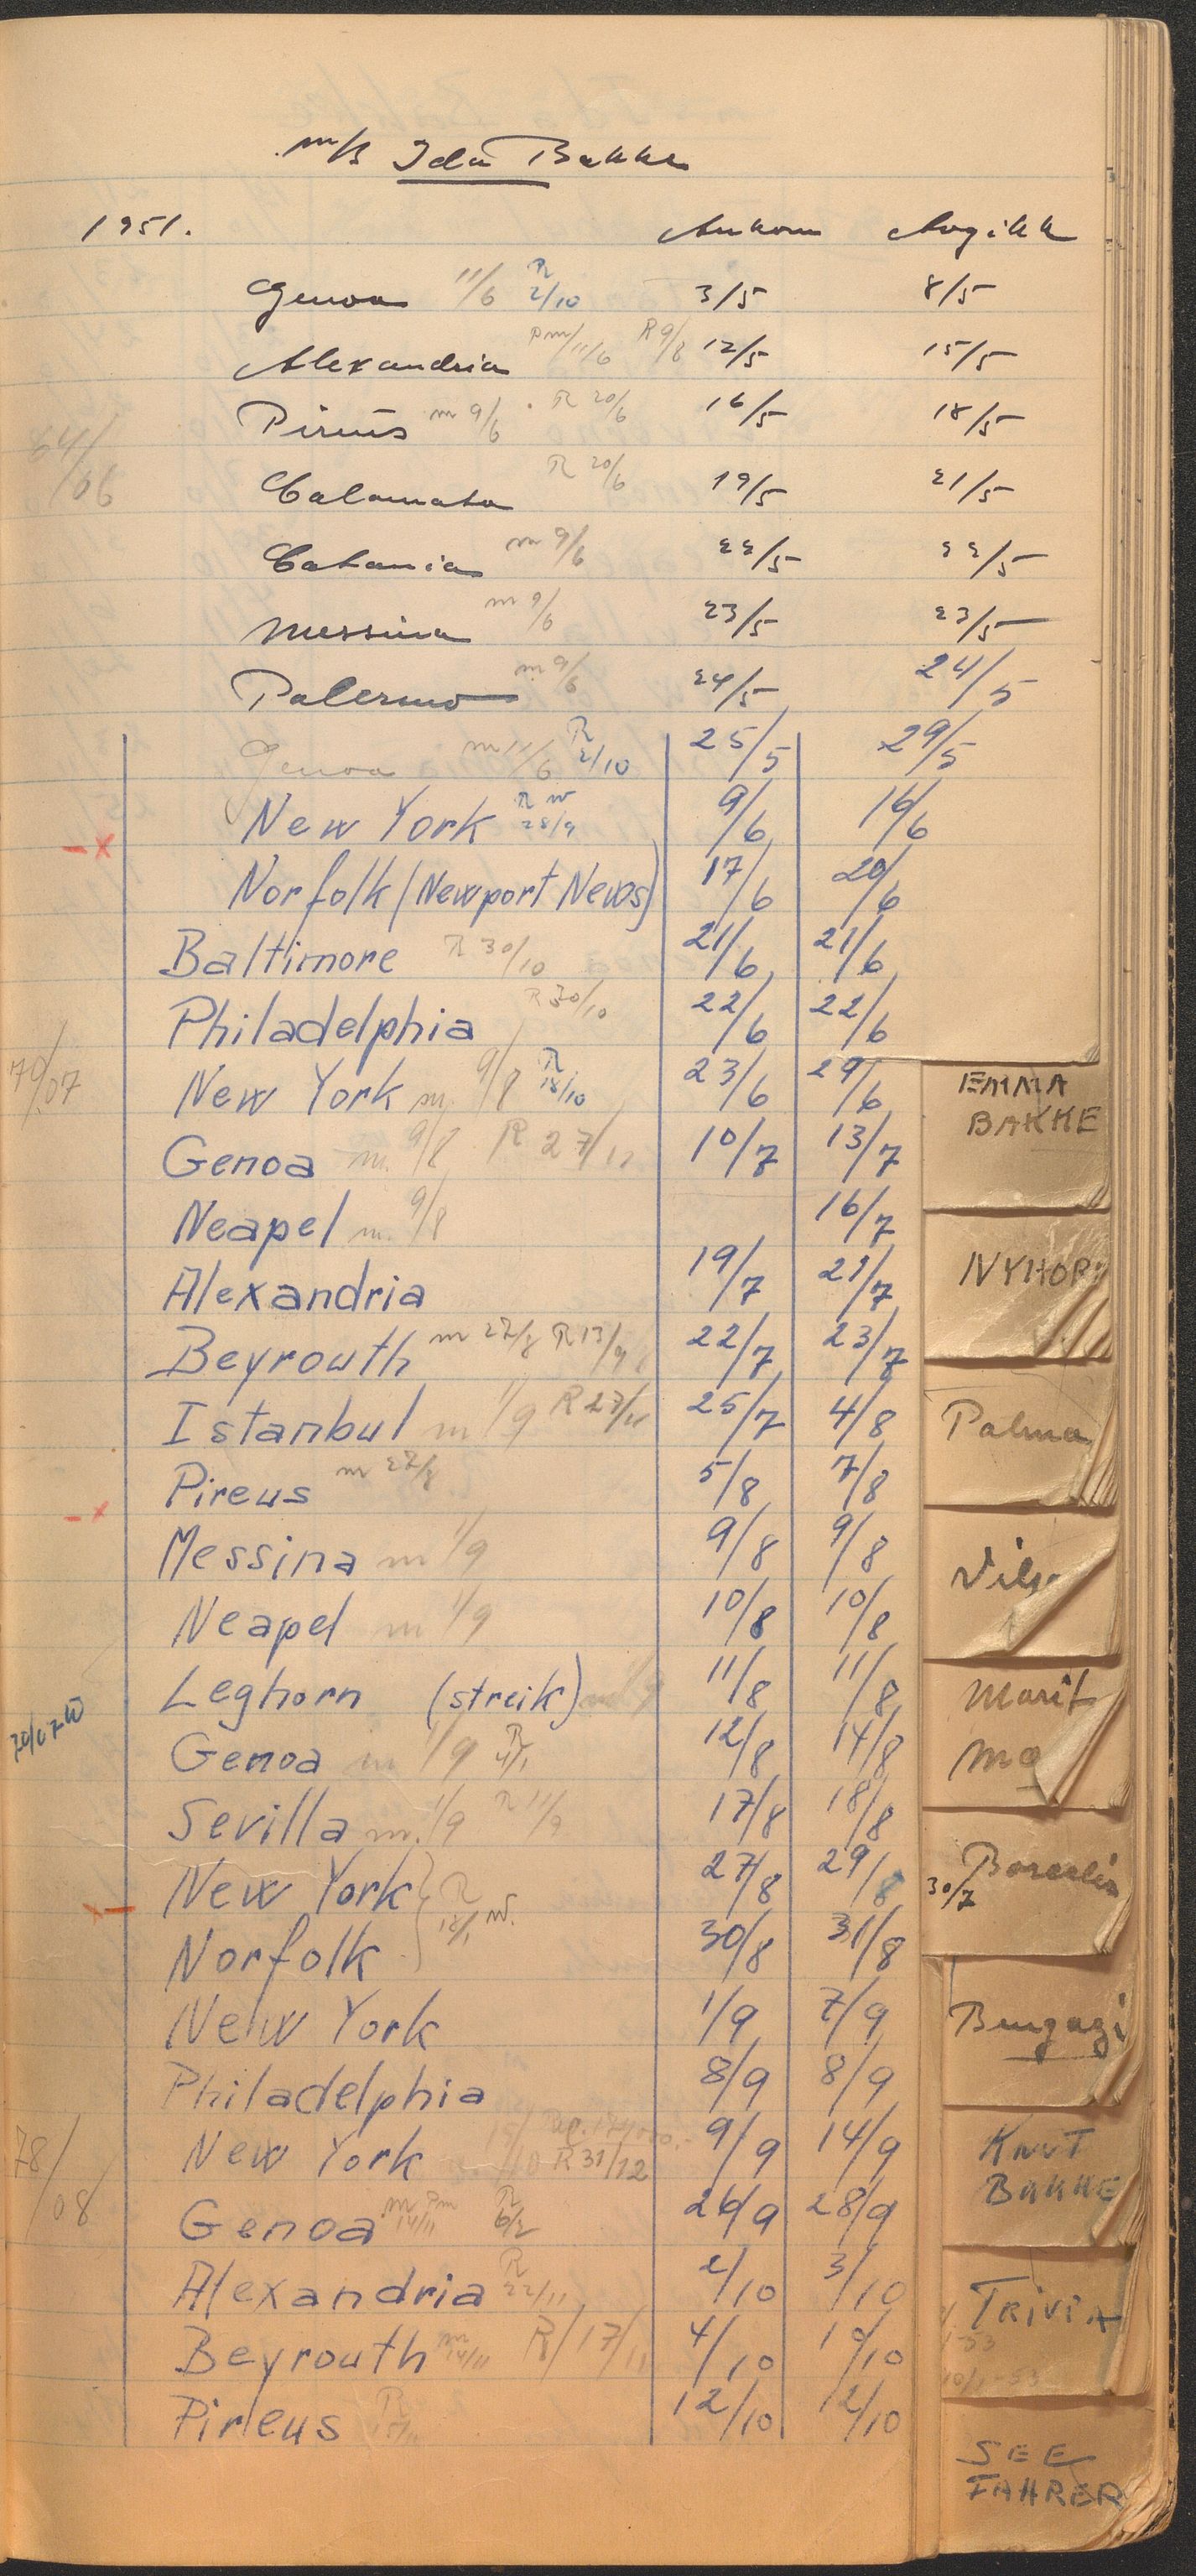 m/s Ida Bakke
1951. Ankom Avgikk
Genoa 11/6 R 2/10 3/5 8/5
Alexandria Pm/11/6 R 9/8 12/5 15/5
Pireus m 9/6 R 20/6 16/5 18/5
Calamata R 20/6 19/5 21/5
Catania m 9/6 22/5 22/5
Messina m 9/6 23/5 23/5
Palermo m 9/6 24/5 24/5
Genoa m 11/6 R 2/10 25/5 29/5
New York R 28/9 9/6 16/6
Norfolk (Newport News) 17/6 20/6
Baltimore R 30/10 21/6 21/6
Philadelphia R 30/10 22/6 22/6
New York m. 9/8 R 18/10 23/6 29/6
Genoa m. 9/8 R 27/11 10/7 13/7
Neapel m. 9/8 16/7
Alexandria 19/7 21/7
Beyrouth m 27/8 R 13/9 22/7 23/7
Istanbul m 1/9 R 27/11 25/7 4/8
Pireus m 27/8 5/8 7/8
Messina m 1/9 9/8 9/8
Neapel m 1/9 10/8 10/8
Leghorn (streik) m 1/9 11/8 11/8
Genoa m 1/9 R 4/1 12/8 14/8
Sevilla m. 1/9 R 11/9 17/8 18/8
New York R 18/1 27/8 29/8
Norfolk 30/8 31/8
New York 1/9 7/9
Philadelphia 8/9 8/9
New York R 31/12 9/9 14/9
Genoa m Pm 14/11 R 6/2 26/9 28/9
Alexandria R 22/11 2/10 3/10
Beyrouth m 14/11 R/17/11 4/10 10/10
Pireus R 15/11 12/10 12/10
64/06
70/07
78/08
EMMA
BAKKE
NYHOR
Palma
Marit
30/7
Knut
BAKKE
TRIVIA
10/1-53
SEE
FAHRER